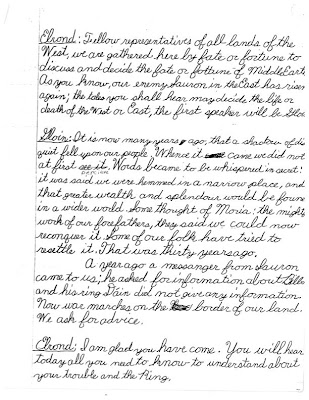 Elrond: Fellow representatives of all lands of the
West, we are gathered here by fate or fortune to
discuss and decide the fate or fortune of Middle Earth
As you know, our enemy Sauron in the East has risen
again; the tales you shall hear may decide the life or
death of the West or East, the first speaker will be Gloin
Gloin: It is now many years ago, that a shadow of dis
quiet fell upon our people. Whence it came we did not
at first see it. Words became to be whispered in secret:
it was said we were hemmed in a narrow place, and
that greater wealth and splendour would be found
in a wider world. Some thought of Moria: the mighty
work of our forefathers, they said we could now
reconquer it some of our folk have tried to
resettle it. That was thirty years ago.
A year ago a messanger from Sauron
came to us; he asked for information about
and his ring Dain did not give any information.
Now war marches on the border of our land.
We ask for advice.
Elrond: I am glad you have come. You will hear
today all you need to know to understand about
your trouble and the Ring.